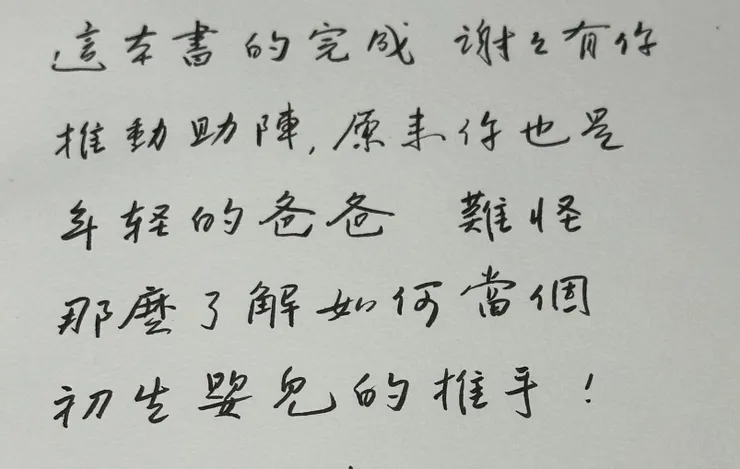 這本書的完成 謝々有你
推動助陣,原来你也是
年轻的爸爸 難怪
那麼了解如何當個
初生嬰兒的推手!